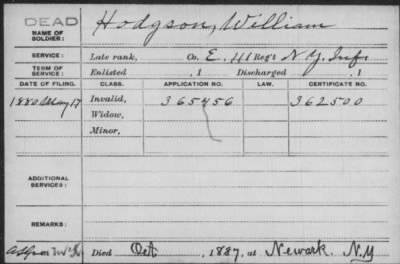 DEAD
NAME OF SOLDIER: Hodgson, William
SERVICE: Late rank, Co. E, 111 Reg't N Y. Inf.
TERM OF SERVICE: Enlisted , 1 Discharged , 1
DATE OF FILING. CLASS. APPLICATION NO. LAW. CERTIFICATE NO.
1880 May 17 Invalid, 365456 362500
Widow,
Minor,
ADDITIONAL SERVICES:
REMARKS:
Died Oct , 1887, at Newark. N.Y